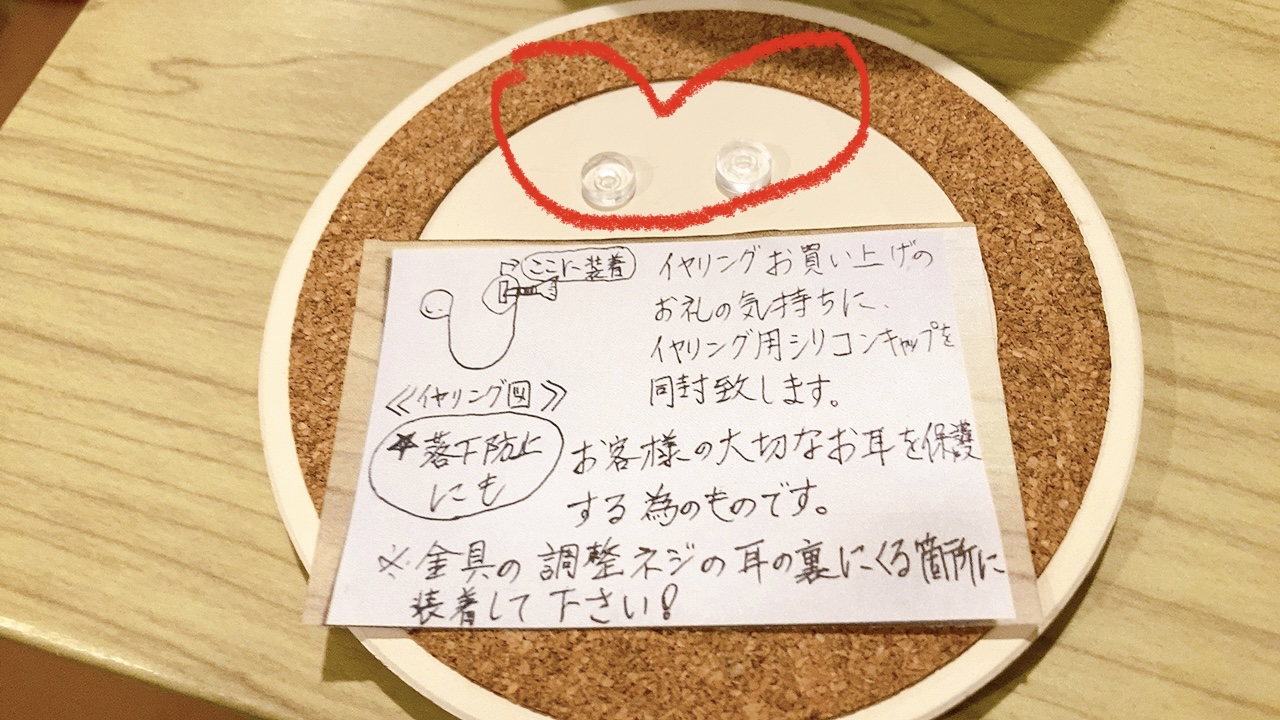 ここに装着
《イヤリング図》
★落下防止
にも
イヤリングお買い上げの
お礼の気持ちに、
イヤリング用シリコンキャップを
同封致します。
お客様の大切なお耳を保護
する為のものです。
※金具の調整ネジの耳の裏にくる箇所に
装着して下さい!